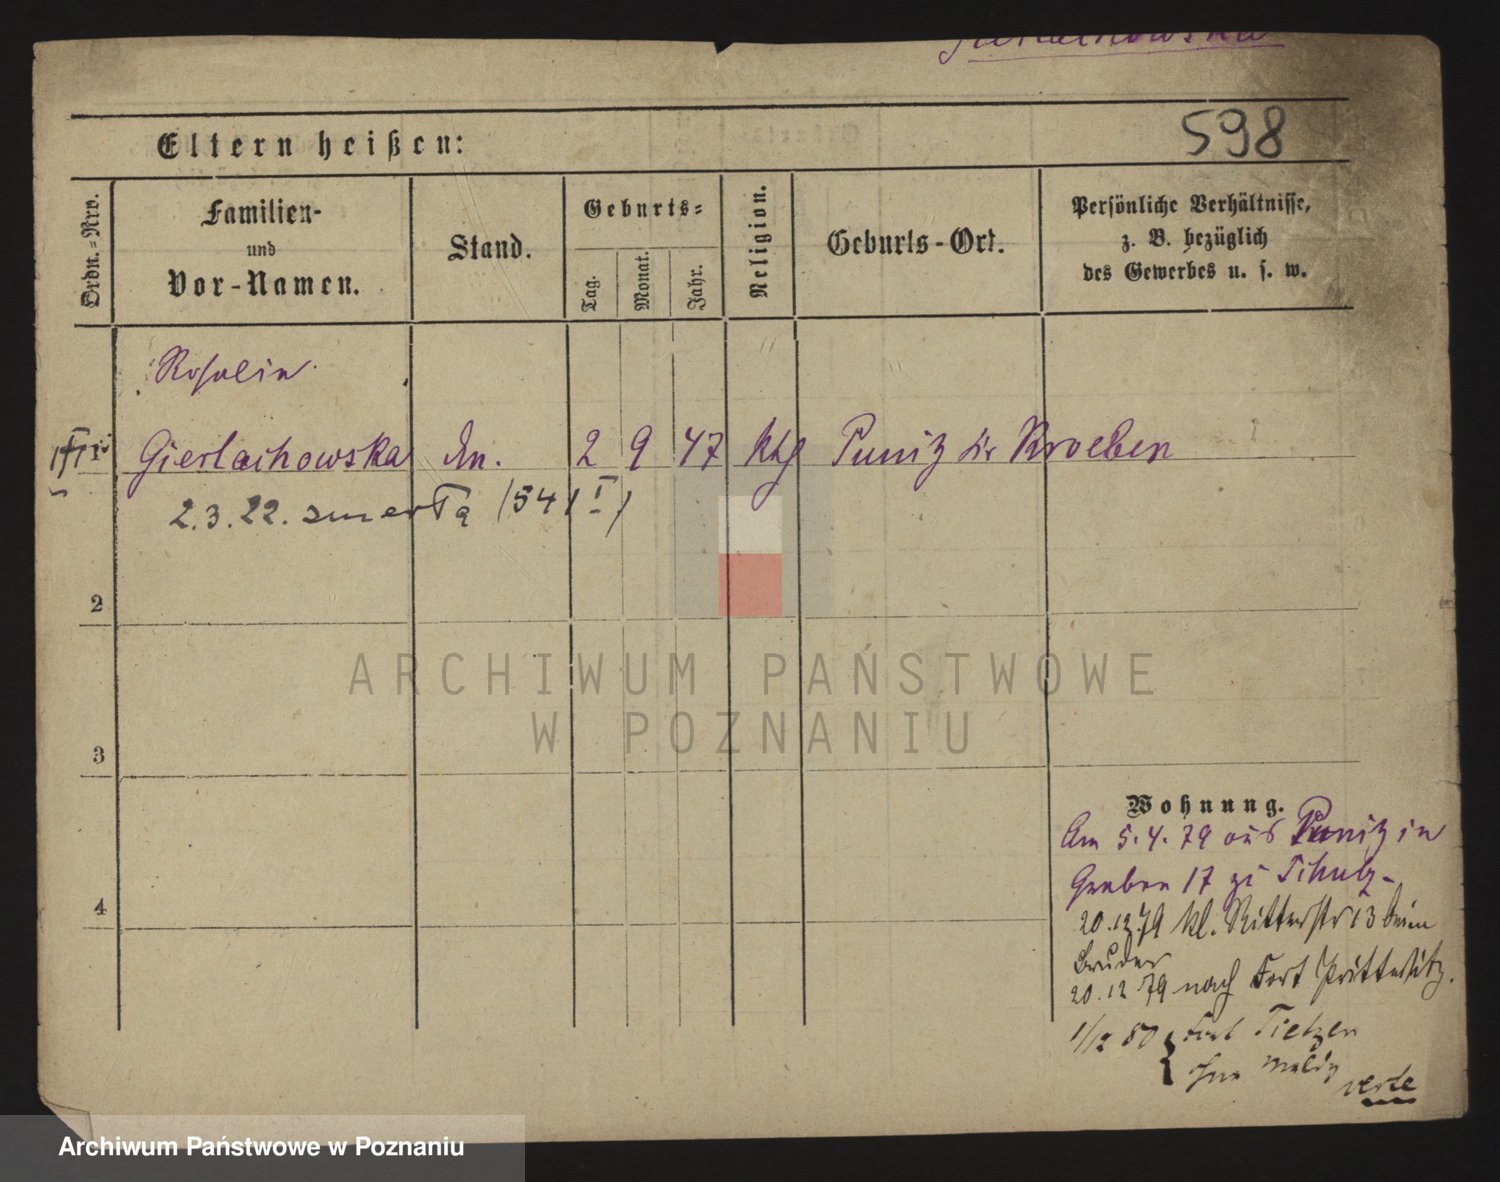 Gierlachowska
598
Eltern heißen:
Ordn.-Nro.
Familien-
und
Vor-Namen.
Stand.
Geburts=
Tag.
Monat.
Jahr.
Religion.
Geburts-Ort.
Persönliche Verhältnisse,
z. B. bezüglich
des Gewerbes u. s. w.
Rosalin
1 Gierlachowska 2 9 47 kth Punitz Kr Kroeben
2.3.22. zmarła (541 I)
2
3
4
ARCHIWUM PAŃSTWOWE
W POZNANIU
Wohnung.
Am 5.4.79 aus Punitz in
Graben 17 zu Schulz-
20.12.79 kl. Ritterstr 13 beim
Bruder
20.12 79 nach Fort Prittwitz.
1/12 80 Fort Tietzen
ohne Meldg
verte
Archiwum Państwowe w Poznaniu